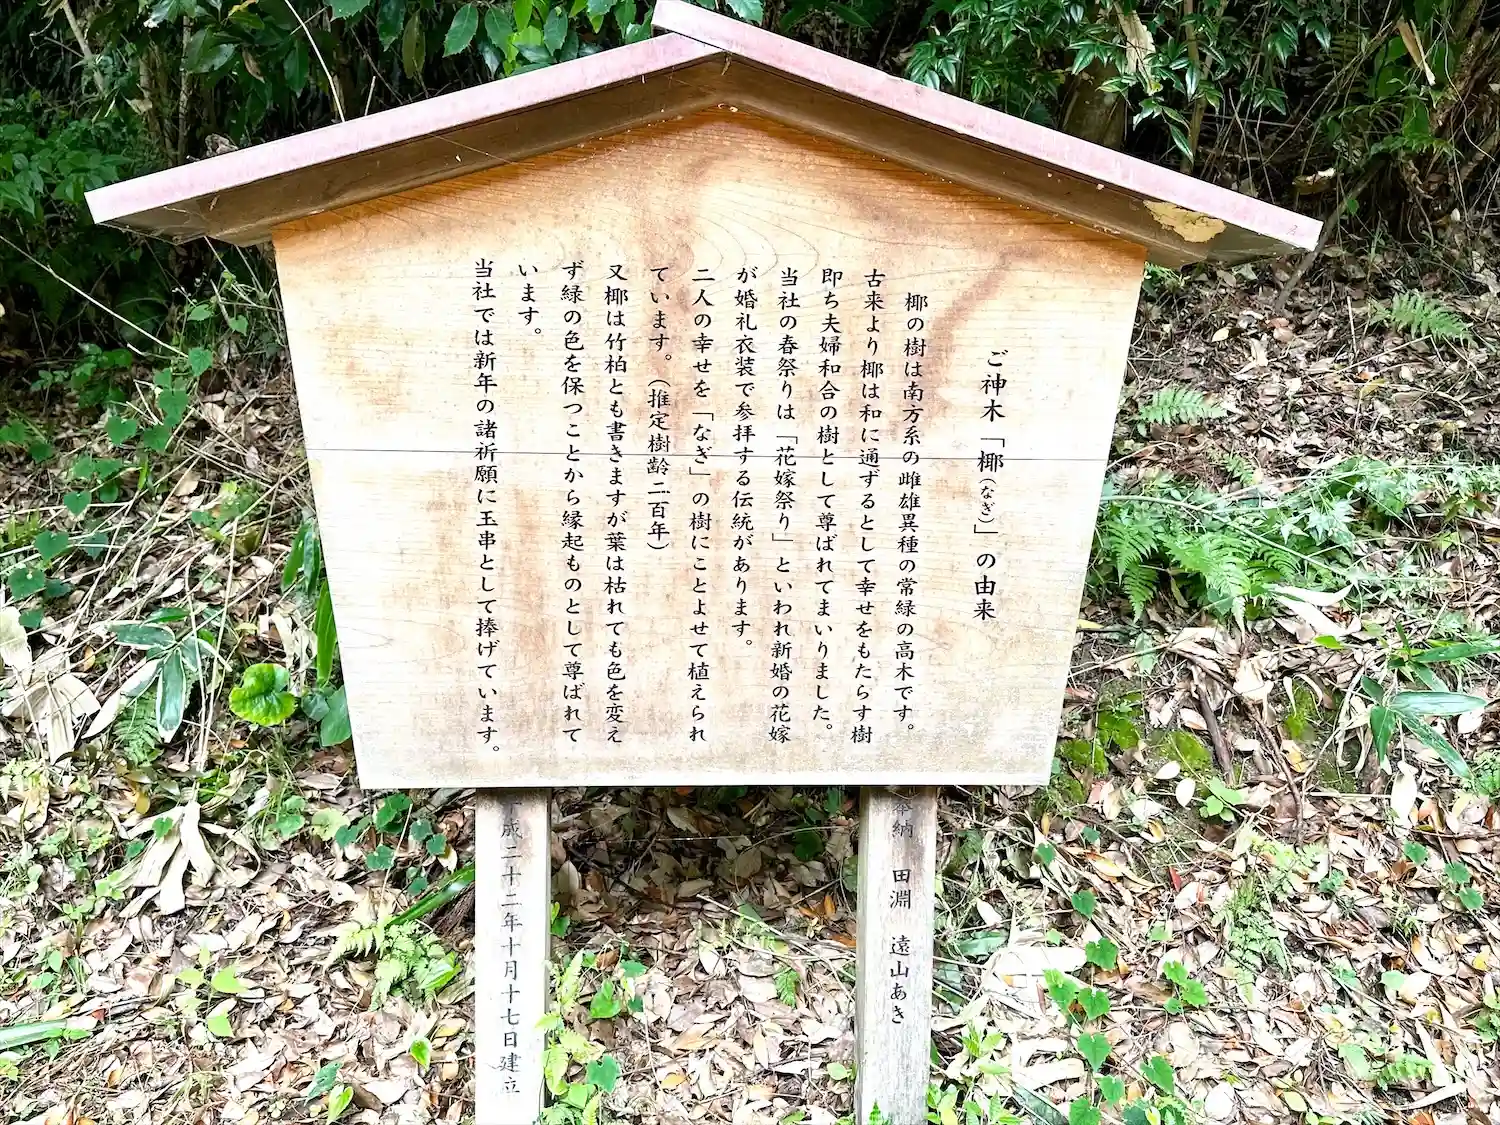 ご神木「椰(なぎ)」の由来
椰の樹は南方系の雌雄異種の常緑の高木です。
古来より椰は和に通ずるとして幸せをもたらす樹
即ち夫婦和合の樹として尊ばれてまいりました。
当社の春祭りは「花嫁祭り」といわれ新婚の花嫁
が婚礼衣装で参拝する伝統があります。
二人の幸せを「なぎ」の樹にことよせて植えられ
ています。(推定樹齢二百年)
又椰は竹柏とも書きますが葉は枯れても色を変え
ず緑の色を保つことから縁起ものとして尊ばれて
います。
当社では新年の諸祈願に玉串として捧げています。
奉納 田淵 遠山あき
成二十二年十月十七日建立